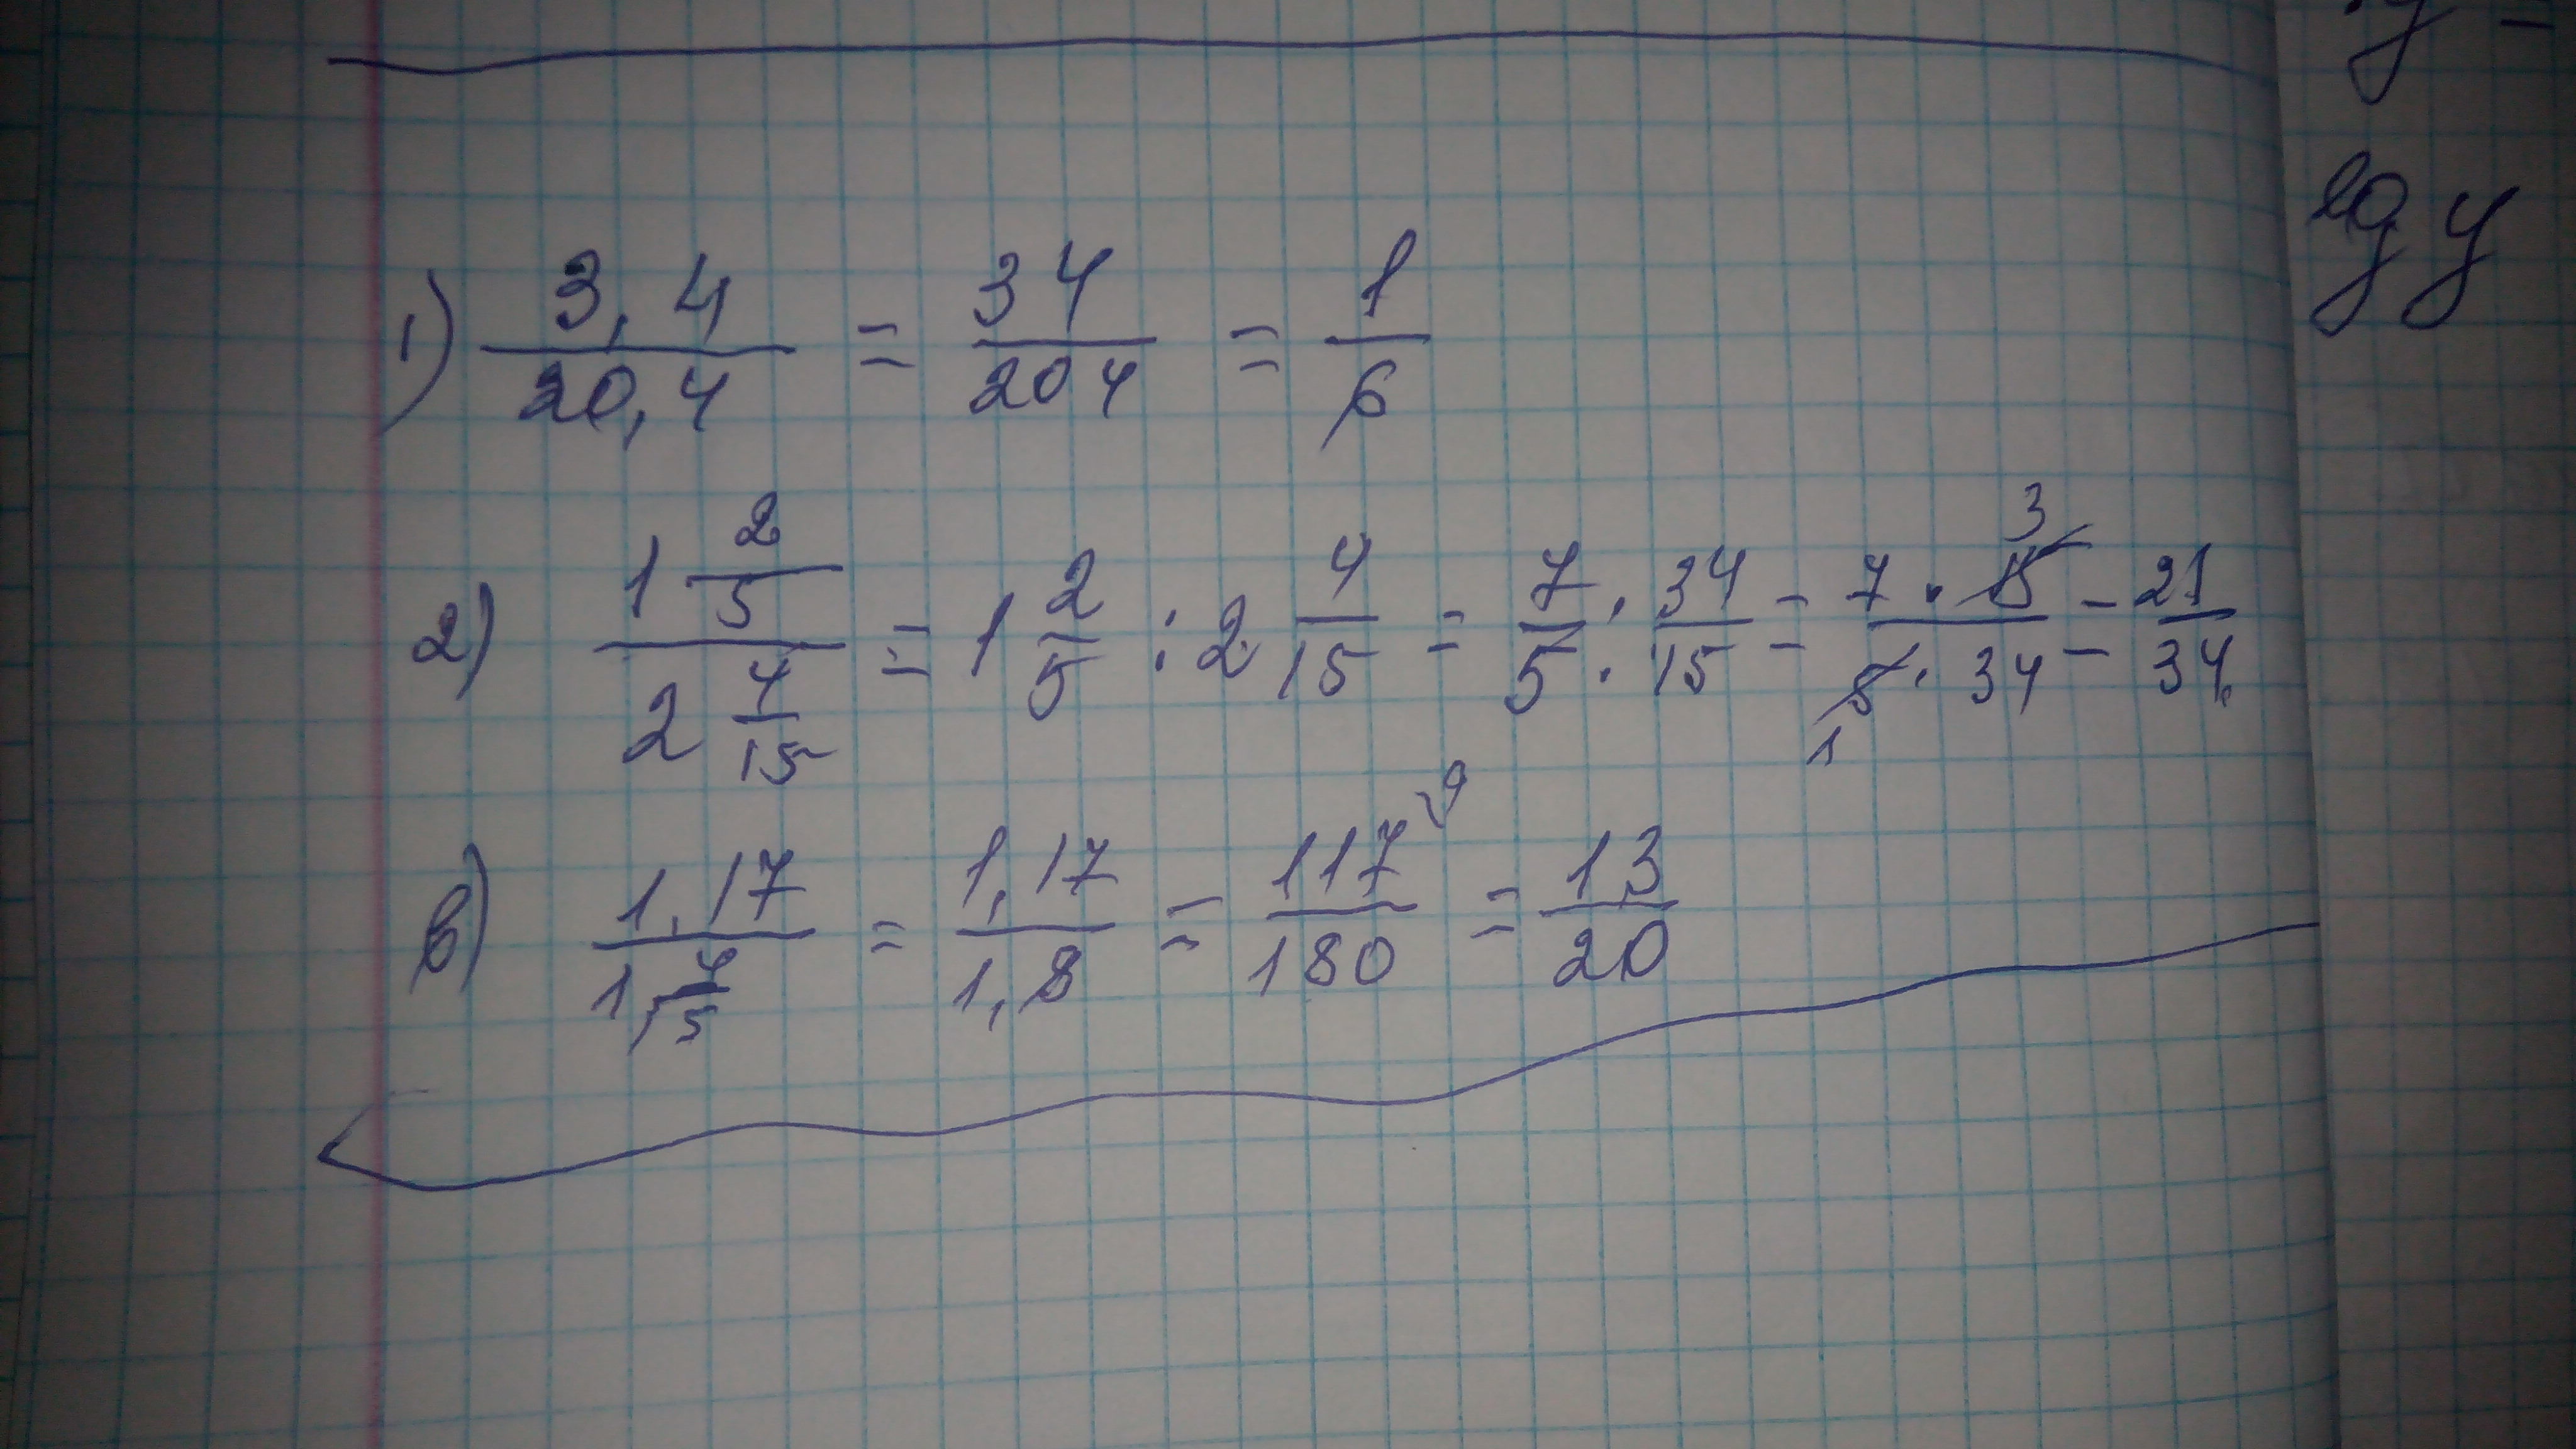 y =
lg y
1) 3,4/20,4 = 34/204 = 1/6
2) 1 2/5 / 2 4/15 = 1 2/5 : 2 4/15 = 7/5 : 34/15 = 7 · 15 3 / 1 5 · 34 = 21/34
в) 1,17 / 1, 4/5 = 1,17/1,8 = 117/180 9 = 13/20